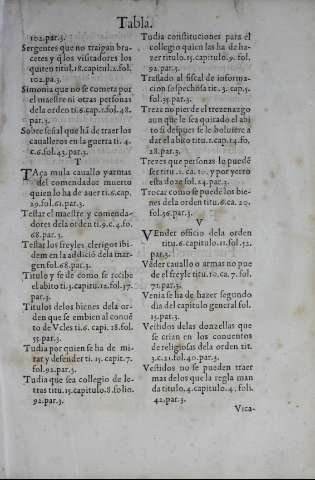 Tabla.
102.par.3.
Sergentes que no traigan bra-
cetes y q̃los visitadores los
quiten titul.18.capitul.2.fol.
102.pa.3.
Simonia que no se cometa por
el maestre ni otras personas
dela orden ti.6.cap.1.fol.48.
par.3.
Sobreseñal que há de traer los
caualleros en la guerra ti.4.
c.6.fol.43.par.3.
T
TAça mula cauallo yarmas
del comendador muerto
quien lo ha de auer ti.6.cap.
29.fol.61.par.3.
Testar el maestre y comenda-
dores dela orden ti.9.c.4.fo.
68.par.3.
Testar los freyles clerigos ibi-
dem en la addició dela mar-
gen fol.68.par.3.
Titulo y se dé como se recibe
el abito ti.3.capitu.12.fol.37.
par.3.
Titulos delos bienes dela or-
den que se embien al conué
to de Vcles ti.6.capi.18.fol.
55.par.3.
Tudia por quien se ha de mi-
rar y defender ti.15.capit.7.
fol.92.par.3.
Tudia que sea collegio de le-
tras titu.15.capitulo.8.folio.
92.par.3.
Tudia constituciones para el
collegio quien las ha de ha-
zer titulo.15.capitulo.9.fol.
92.par.3.
Traslado al fiscal de informa-
cion sospechosa tit.3.cap.5.
fol.35.par.3.
Treze no pierde el trezenazgo
aun que le sea quitado el abi
to si despues se le boluiere a
dar el abito titu.1.cap.14.fo.
28.par.3.
Trezes que personas lo puedé
ser titu.1.ca.10.y por yerro
esta doze fol.24.par.3.
Trocar como se puede los bie-
nes dela orden titu.6.ca.20.
fol.56.par.3.
V
VEnder officio dela orden
titu.6.capitulo.11.fol.52.
par.3.
Véder cauallo o armas no pue
de el freyle titu.10.ca.7.fol.
71.par.3.
Venia se ha de hazer segundo
dia del capitulo general fol.
15.par.3.
Vestidos delas donzellas que
se crian en los conuentos
de religiosas dela orden tit.
3.c.21.fol.40.par.3.
Vestidos no se pueden traer
mas delos que la regla man
da titulo.4.capitulo.4.foli.
42.par.3.
Vica-